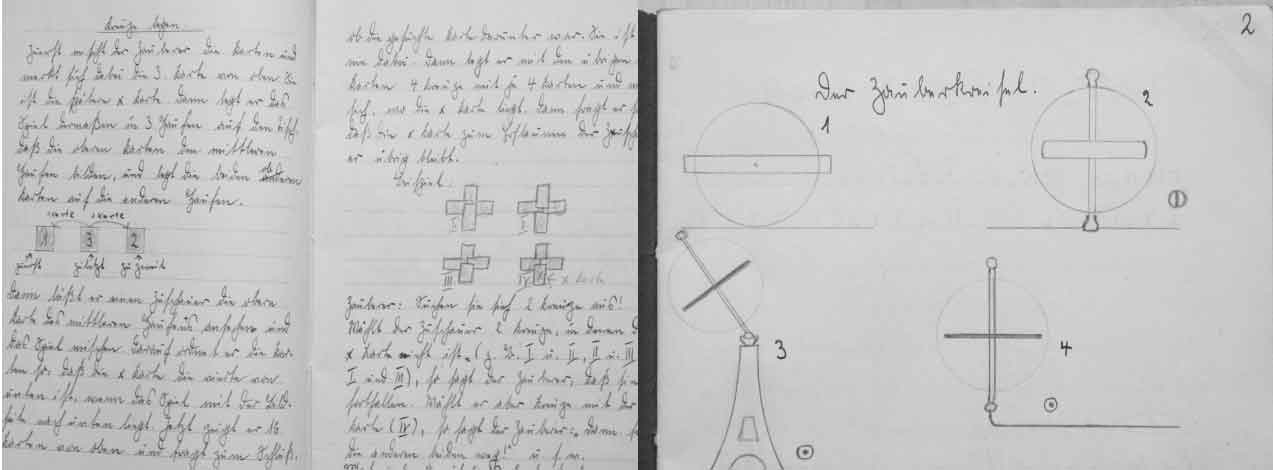 Kreuze legen.
Zuerst mischt der Zauberer die Karten und
merkt sich dabei die 3. Karte von oben. Sie
ist die spätere x Karte. Dann legt er das
Spiel dermaßen in 3 Haufen auf den Tisch,
daß die oberen Karten den mittleren
Haufen bilden, und legt die beiden oberen
Karten auf die anderen Haufen.
1 Karte 1 Karte
1 3 2
zuerst zuletzt zu zweit
Dann läßt er einen Zuschauer die obere
Karte des mittleren Haufens ansehen und
das Spiel mischen. Darauf ordnet er die Kar-
ten so, daß die x Karte die vierte von
unten ist, wenn das Spiel mit der Bild-
seite nach unten liegt. Jetzt zeigt er 16
Karten von oben und fragt zum Schluß,
ob die gesuchte Karte darunter war. Sie ist
nie dabei. Dann legt er mit den übrigen
Karten 4 Kreuze mit je 4 Karten und
sich, wo die x Karte liegt. Dann
daß die x Karte zum Erstaunen der
er übrig bleibt.
Beispiel:
I
III IV x Karte
Zauberer: Suchen sie sich 2 Kreuze aus!
Wählt der Zuschauer 2 Kreuze, in denen
x Karte nicht ist, (z. B. I u. II, II u. III
I und III), so sagt der Zauberer, daß sie
fortfallen. Wählt er aber Kreuze mit der
Karte (IV), so sagt der Zauberer: dann
die anderen beiden weg!" u. s. w.
2
Der Zauberkreisel.
1
2
3
4